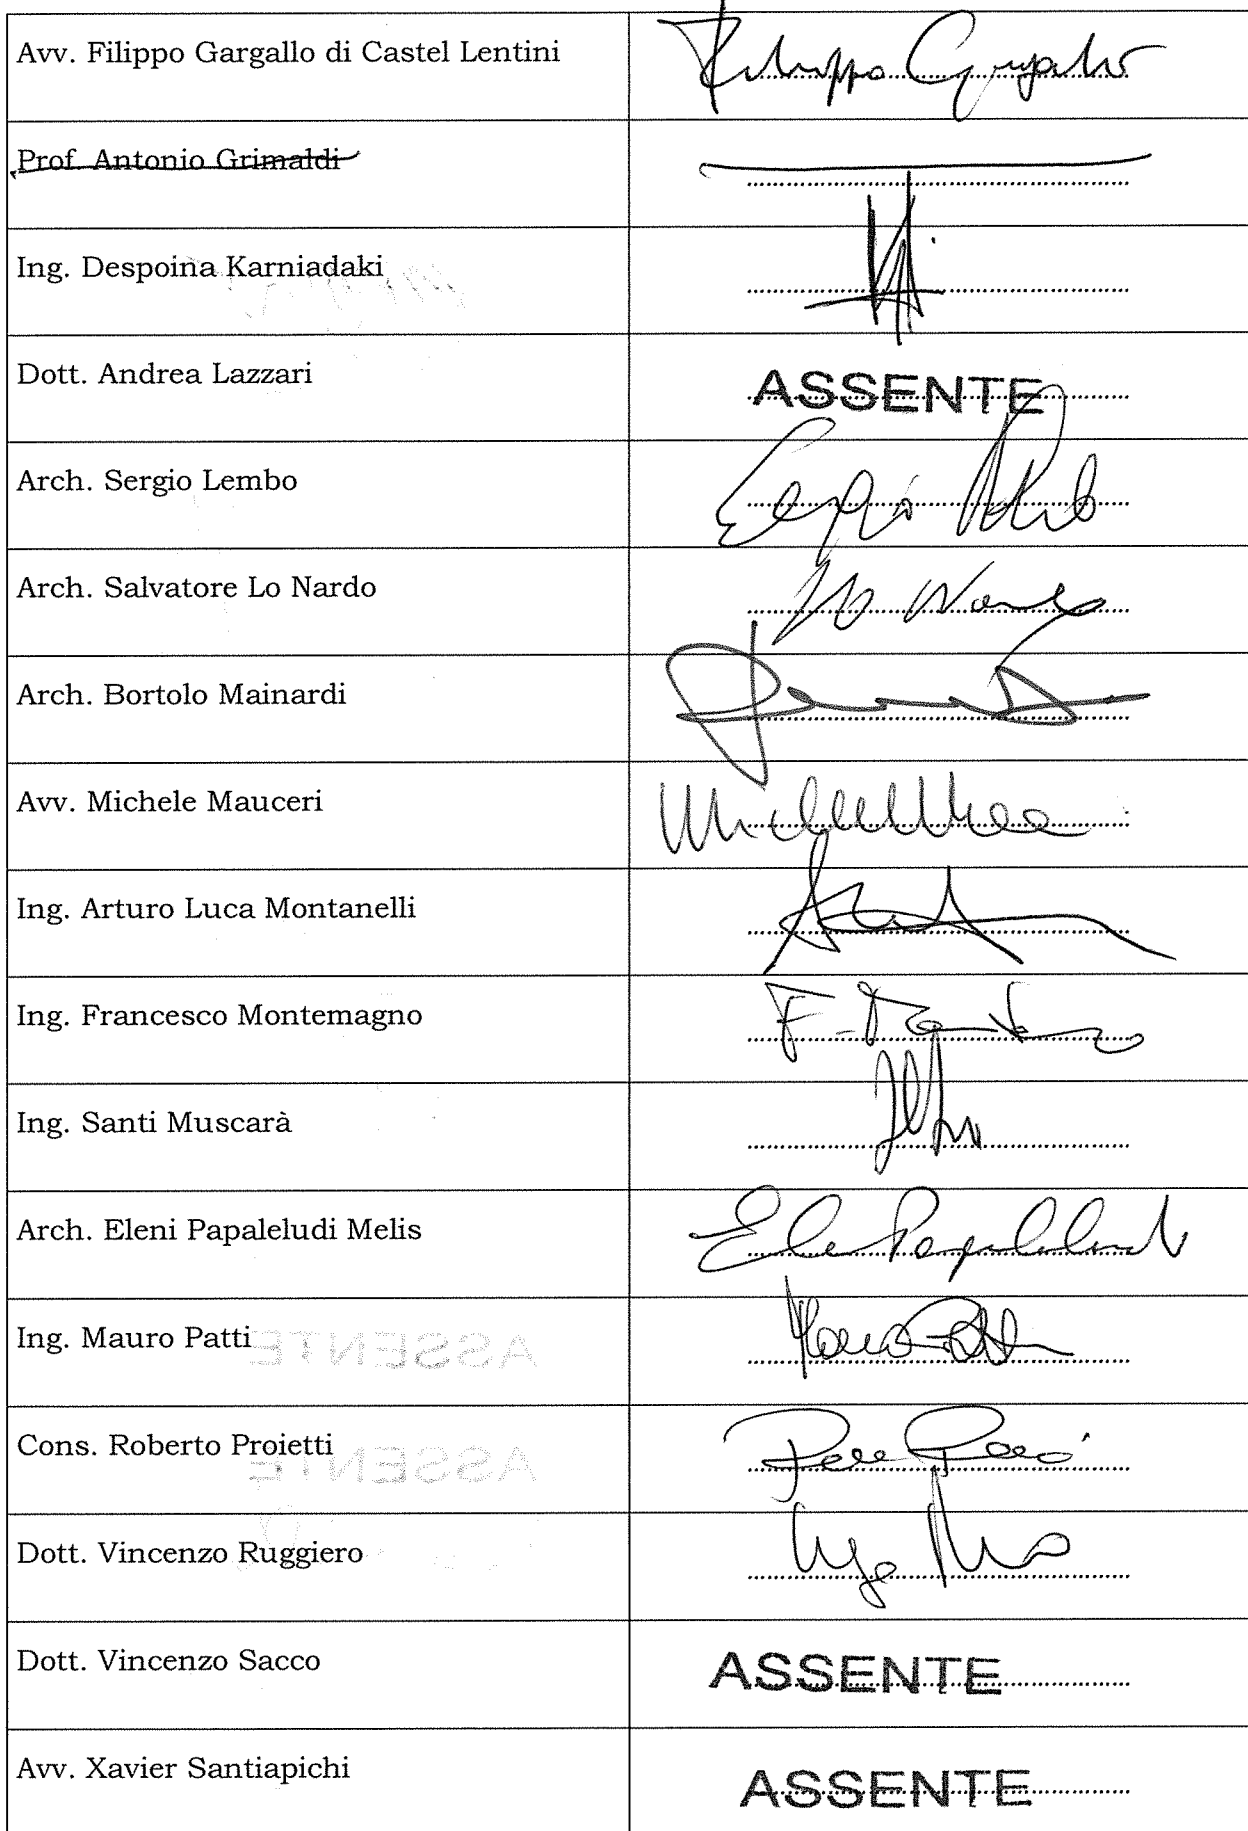 Avv. Filippo Gargallo di Castel Lentini Filippo Gargallo
Prof. Antonio Grimaldi
Ing. Despoina Karniadaki
Dott. Andrea Lazzari ASSENTE
Arch. Sergio Lembo Sergio
Arch. Salvatore Lo Nardo Lo Nardo
Arch. Bortolo Mainardi
Avv. Michele Mauceri
Ing. Arturo Luca Montanelli
Ing. Francesco Montemagno
Ing. Santi Muscarà
Arch. Eleni Papaleludi Melis
Ing. Mauro Patti
Cons. Roberto Proietti
Dott. Vincenzo Ruggiero
Dott. Vincenzo Sacco ASSENTE
Avv. Xavier Santiapichi ASSENTE